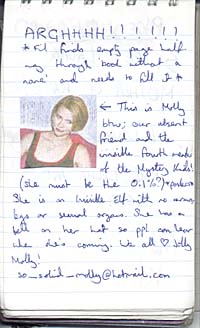 ARGHHHH!!!!!!!
*Fil finds empty page half
way through 'book without a
name' and needs to fill it *
← This is Molly
btw; our absent
friend and the
invisible fourth member
of the Mystery Kids!
(she must be the 0.1%?)
She is an Invisible Elf with no arms,
legs or sexual organs. She has a
bell on her hat so ppl can hear
when she's coming. We all ♡ Jolly
Molly!
so_solid_molly@hotmail.com